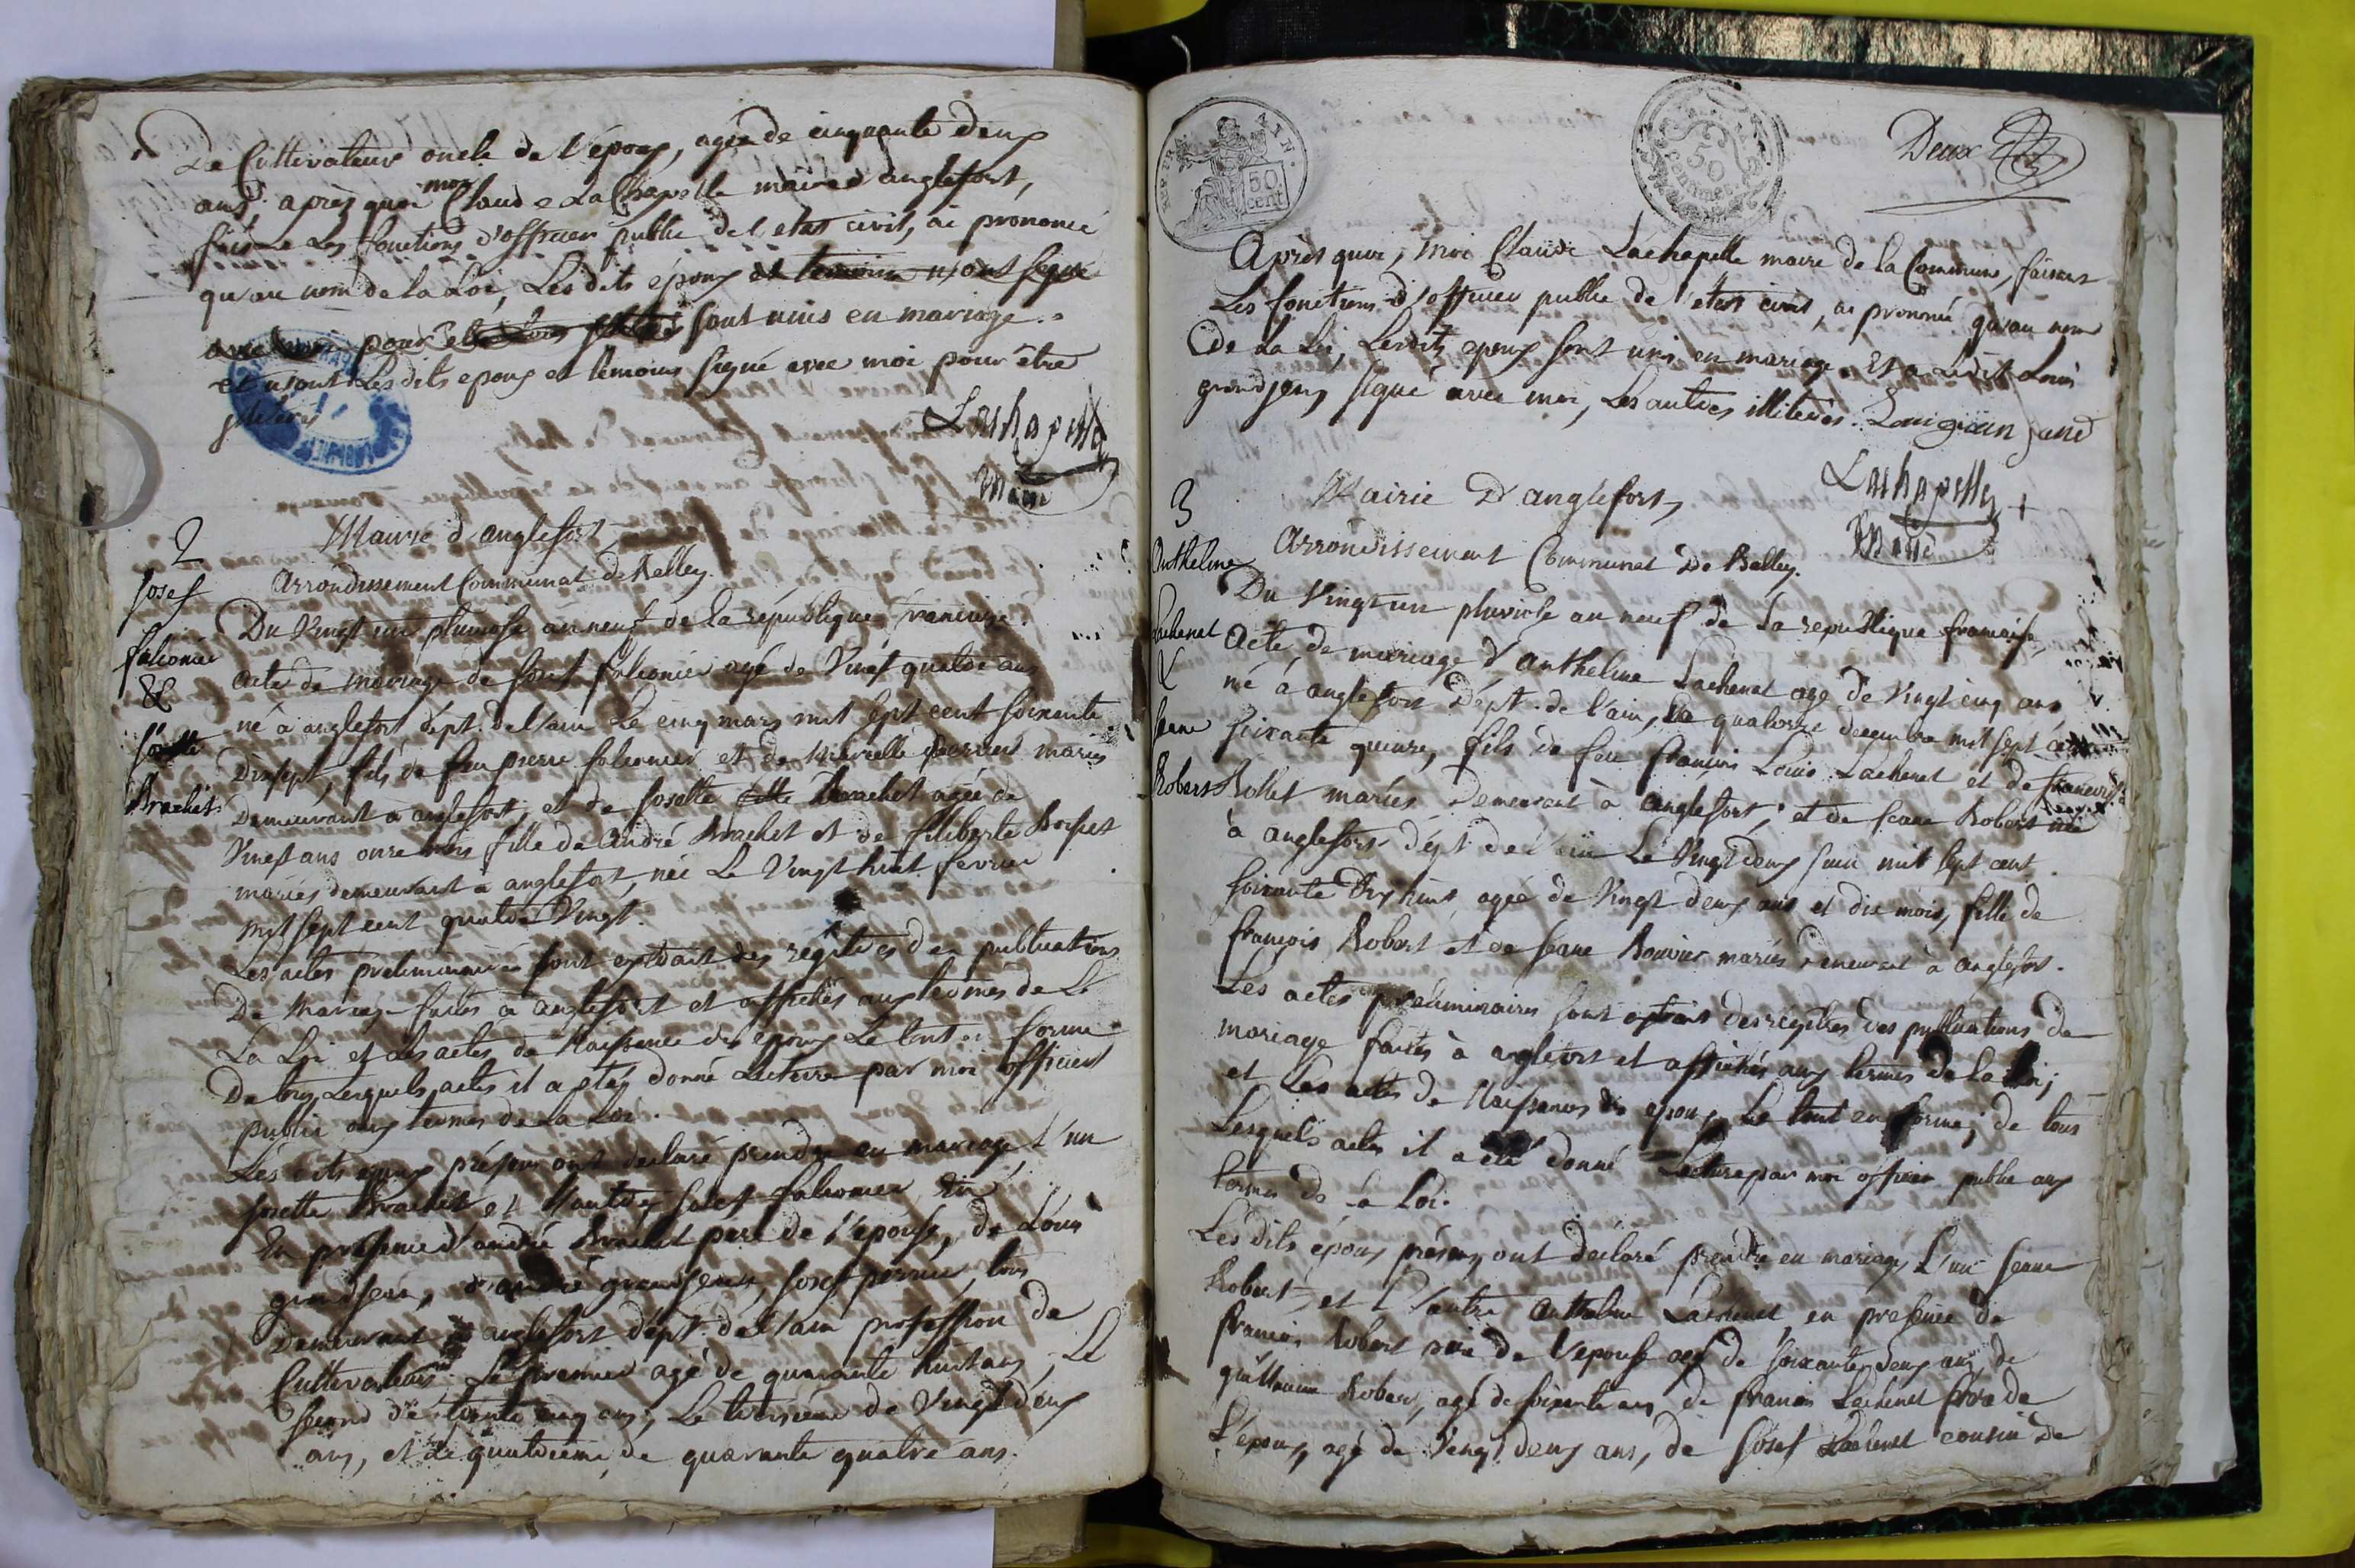 Le Cultivateur oncle de l'époux, agée de cinquante deux
ans, après quoi moi Claude LaChapelle maire d'anglefort,
faisant Les fonctions d'officier public de l'etat civil, ai prononcé
qu'au nom de la Loi, Les dits époux et temoins n'ont signé
avec moi pour sont unis en mariage.
et n'ont Les dits epoux et temoins signé avec moi pour être
illiterés
Lachapelle
Maire
2
Mairie d'anglefort
Arrondissement Communal de Belley.
Josef
falconier
&
Josette
Brachet
Du Vingt un pluviose an neuf de la république francaise.
acte de mariage de Josef falconier agé de Vingt quatre ans
né à anglefort dépt. de l'ain Le cinq mars mil sept cent soixante
Dixsept, fils de feu pierre falconier et de perrier mariés
Demeurant à anglefort, et de Josette Brachet agée de
Vingt ans onze mois fille de andré Brachet et de filiberte
mariés demeurant à anglefort, née Le Vingt huit février
mil sept cent quatre Vingt.
Les actes preliminaires sont extrait des regitres des publications
De Mariage faites à anglefort et affichés aux termes de Le
La Loi et des actes de Naissance des epoux Le tout en forme
De tous Lesquels actes il a étéz donné Lecture par moi officier
public aux termes de La Loi.
Les dits epoux présens ont declaré prendre en mariage L'un
Josette Brachet et L'autre Josef falconier En
En présence d'andré Brachet père de l'épouse, de Louis
grandjean, d'andré grandjean, Josef perrier, tous
Demeurant à anglefort dépt. de l'ain profession de
Cultivateurs Le premier agé de quarante huit ans, Le
second de trente cinq ans, Le troisieme de Vingt deux
ans, et Le quatrieme de quarante quatre ans.
REP. FRA
50
cent
50
centimes
Deux
Après quoi, moi Claude Lachapelle maire de la Commune, faisant
Les fonctions d'officier public de l'etat civil, ai prononcé qu'au nom
de La Loi, Lesdits epoux sont unis en mariage. Et a Ledit Louis
grandjean signé avec moi, Les autres illiterés. Loui grian jand
Lachapelle
Maire
3
Mairie D'anglefort,
Arrondissement Communal De Belley.
Anthelme
Lachenal
&
Jeane
Robert
Du Vingt un pluviose an neuf de La republique francaise,
Acte de mariage d'Anthelme Lachenal agé de Vingt cinq ans
né à anglefort Dépt. de l'ain, Le quatorze decembre mil sept cent
soixante quinze, fils de feu françois Louis Lachenal et de francoise
Rollet mariés Demeurant à anglefort; et de Jeane Robert née
à anglefort dépt de l'ain Le Vingt deux juin mil sept cent
soixante Dix huit agée de Vingt deux ans et dix mois, fille de
françois Robert et de Jeane Bouvier mariés demeurant à anglefort.
Les actes préliminaires sont extrait des regitres des publications de
mariage faites à anglefort et affichés aux termes de la Loi;
et Les actes de Naissances des epoux, Le tout en forme; de tous
Lesquels actes il a été donné Lecture par moi officier public aux
termes de La Loi.
Les dits époux présens, ont declaré prendre en mariage, L'un Jeane
Robert et L'autre Anthelme Lachenal, en presence de
françois Robert père de l'epouse agé de soixante deux ans, de
guillaume Robert, agé de soixante ans, de francois Lachenal frère de
L'époux, agé de Vingt deux ans, de Josef Lachenal cousin de